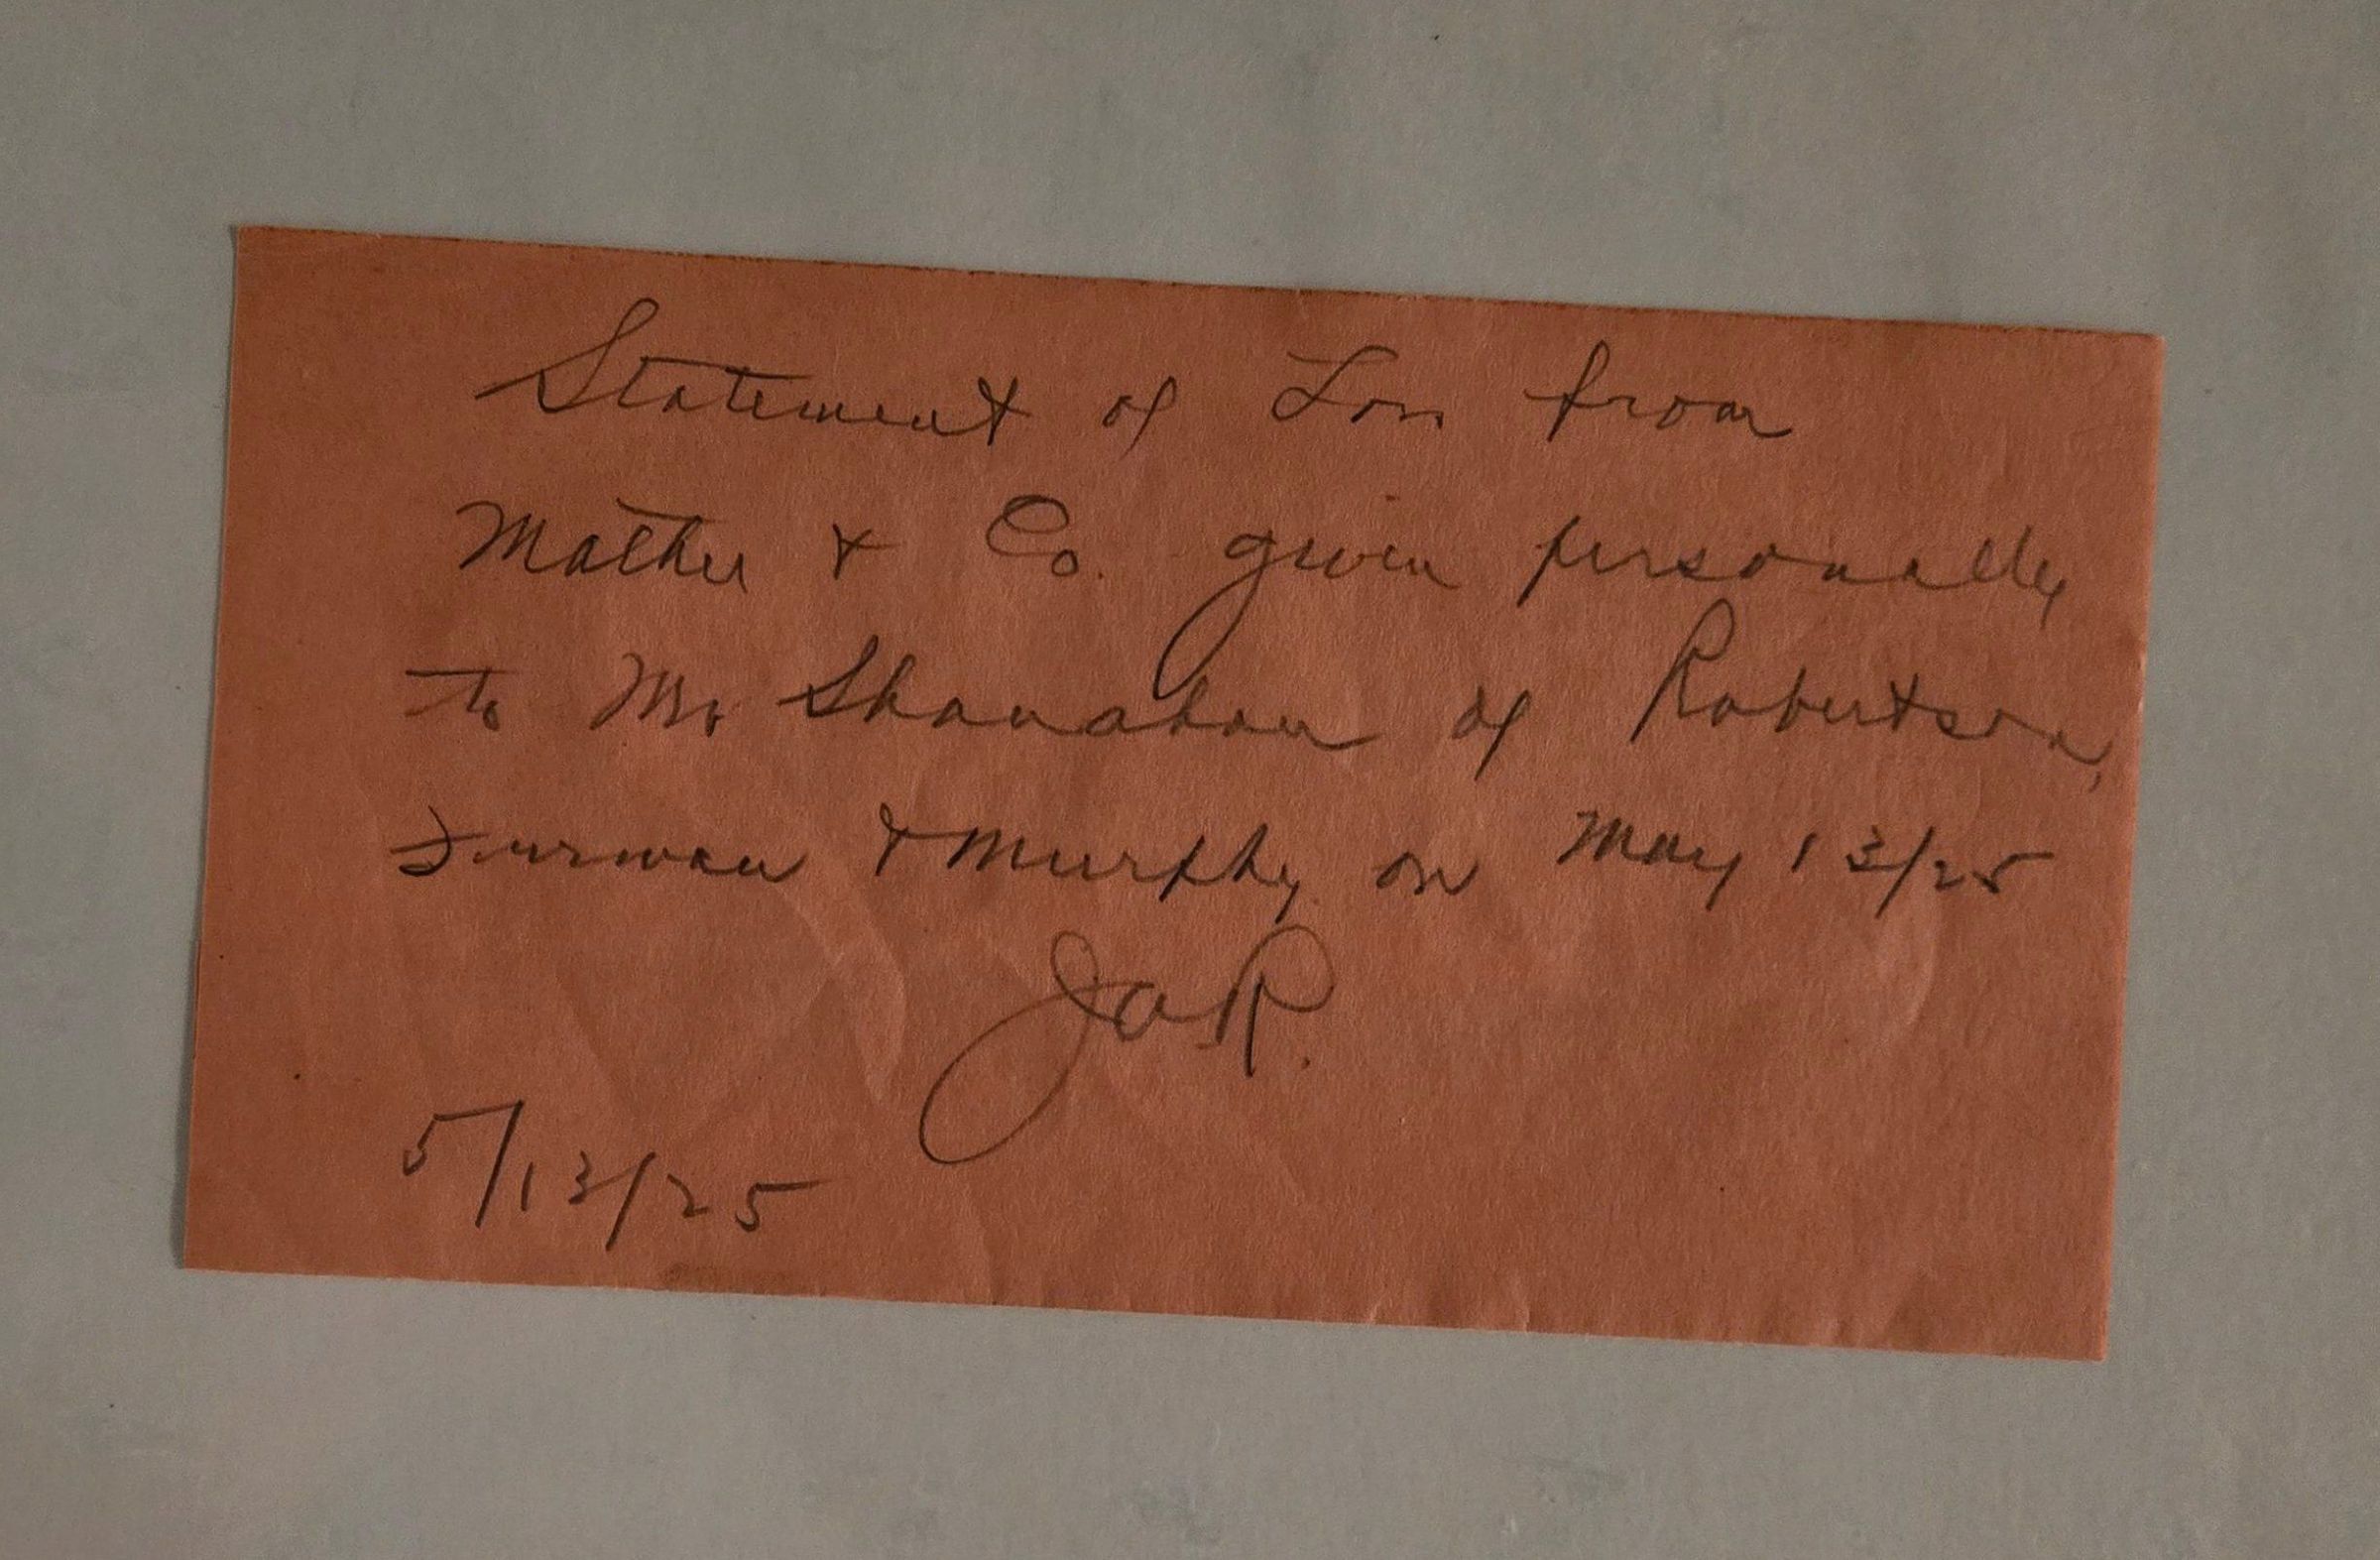 Statement of Loss from
Mather & Co. given personally
to Mr Shanahan of Robertson,
Furman & Murphy on May 13/25
JAR.
5/13/25